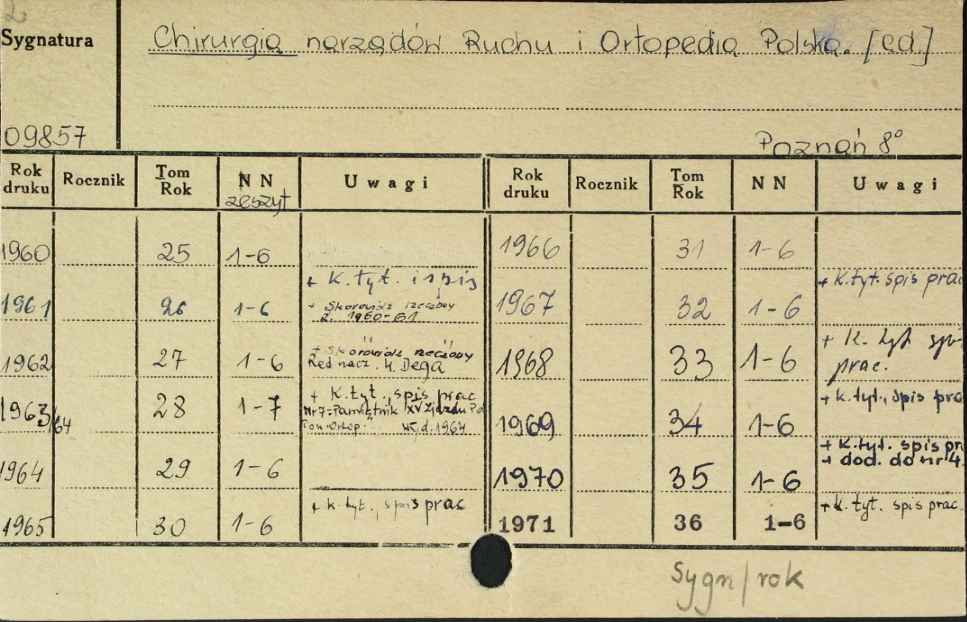 2
Sygnatura
Chirurgia narządów Ruchu i Ortopedia Polska. [ed.]
09857
Poznań 8°
Rok druku Rocznik Tom Rok NN zeszyt Uwagi Rok druku Rocznik Tom Rok NN Uwagi
1960 25 1-6
1966 31 1-6
+ K. tyt. i spis
+ K. tyt. spis prac
1961 26 1-6 + Skorowidz rzeczowy z. 1960-61
1967 32 1-6
1962 27 1-6 + Skorowidz rzeczowy Red nacz. W. Dega
1968 33 1-6 + K. tyt spis prac.
1963/64 28 1-7 + K. tyt., spis prac Nr 7=Pamiętnik XV Zjazdu Pol Tow. Ortop. wyd. 1964
1969 34 1-6 + K. tyt., spis prac
1964 29 1-6
1970 35 1-6 + K. tyt. spis pr + dod. do nr 4
1965 30 1-6 + k. tyt., spis prac
1971 36 1-6 + K. tyt. spis prac.
Sygn/rok